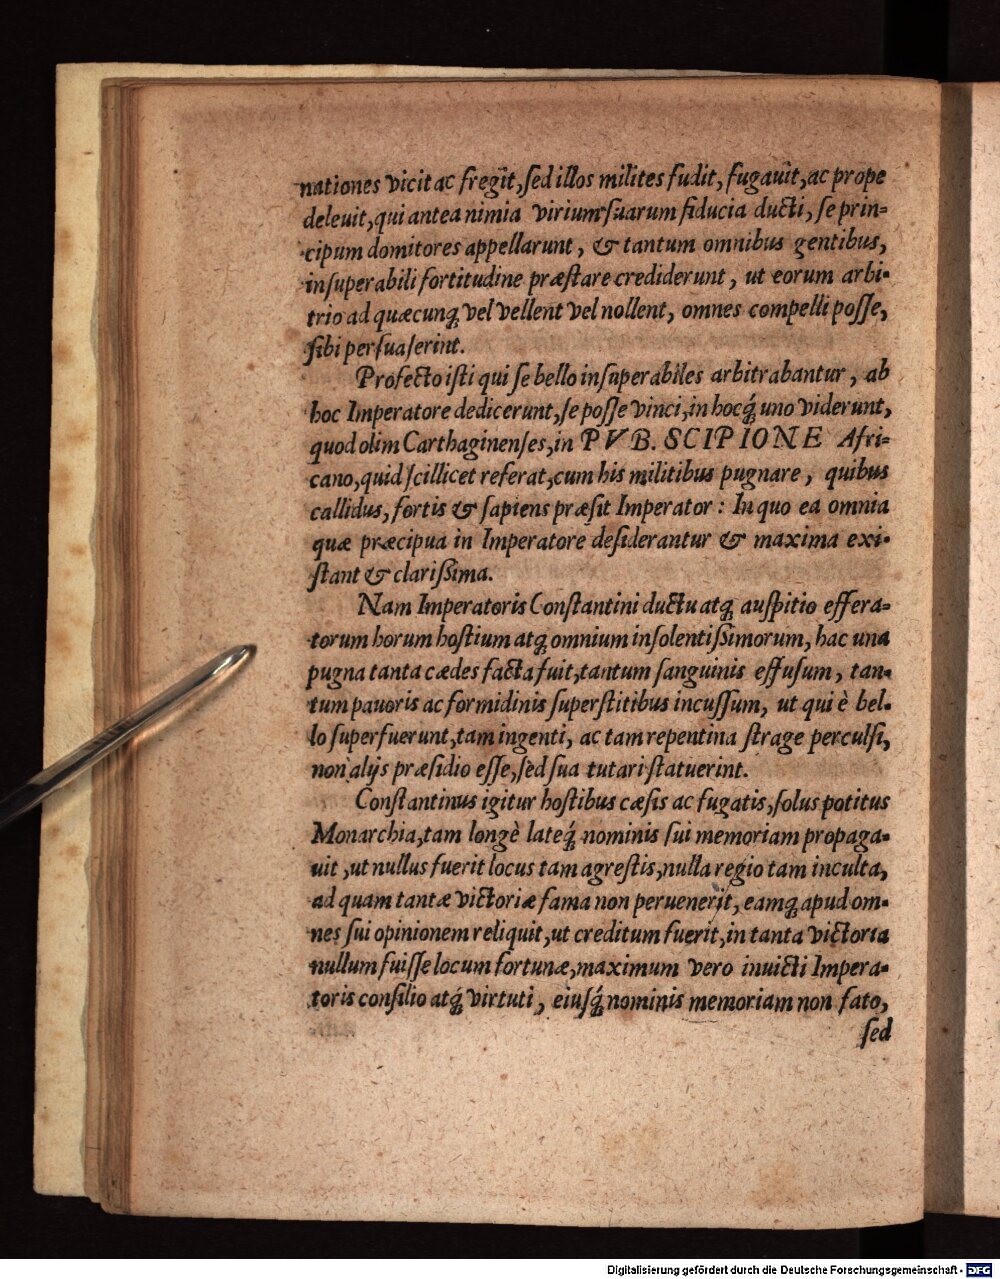 nationes vicit ac fregit, sed illos milites fudit, fugauit, ac prope
deleuit, qui antea nimia virium suarum fiducia ducti, se prin-
cipum domitores appellarunt, & tantum omnibus gentibus,
insuperabili fortitudine præstare crediderunt, ut eorum arbi-
trio ad quæcunq; vel vellent vel nollent, omnes compelli posse,
sibi persuaserint.
Profecto isti qui se bello insuperabiles arbitrabantur, ab
hoc Imperatore dedicerunt, se posse vinci, in hocq́; uno viderunt,
quod olim Carthaginenses, in PVB. SCIPIONE Afri-
cano, quid scillicet referat, cum his militibus pugnare, quibus
callidus, fortis & sapiens præsit Imperator: In quo ea omnia
quæ præcipua in Imperatore desiderantur & maxima exi-
stant & clarissima.
Nam Imperatoris Constantini ductu atq; auspitio effera-
torum horum hostium atq; omnium insolentissimorum, hac una
pugna tanta cædes facta fuit, tantum sanguinis effusum, tan-
tum pauoris ac formidinis superstitibus incussum, ut qui è bel-
lo superfuerunt, tam ingenti, ac tam repentina strage perculsi,
non alijs præsidio esse, sed sua tutari statuerint.
Constantinus igitur hostibus cæsis ac fugatis, solus potitus
Monarchia, tam longè lateq́; nominis sui memoriam propaga-
uit, ut nullus fuerit locus tam agrestis, nulla regio tam inculta,
ad quam tantæ victoriæ fama non peruenerit, eamq; apud om-
nes sui opinionem reliquit, ut creditum fuerit, in tanta victoria
nullum fuisse locum fortunæ, maximum vero inuicti Impera-
toris consilio atq́; virtuti, eiusq́; nominis memoriam non fato,
sed
Digitalisierung gefördert durch die Deutsche Forschungsgemeinschaft - DFG